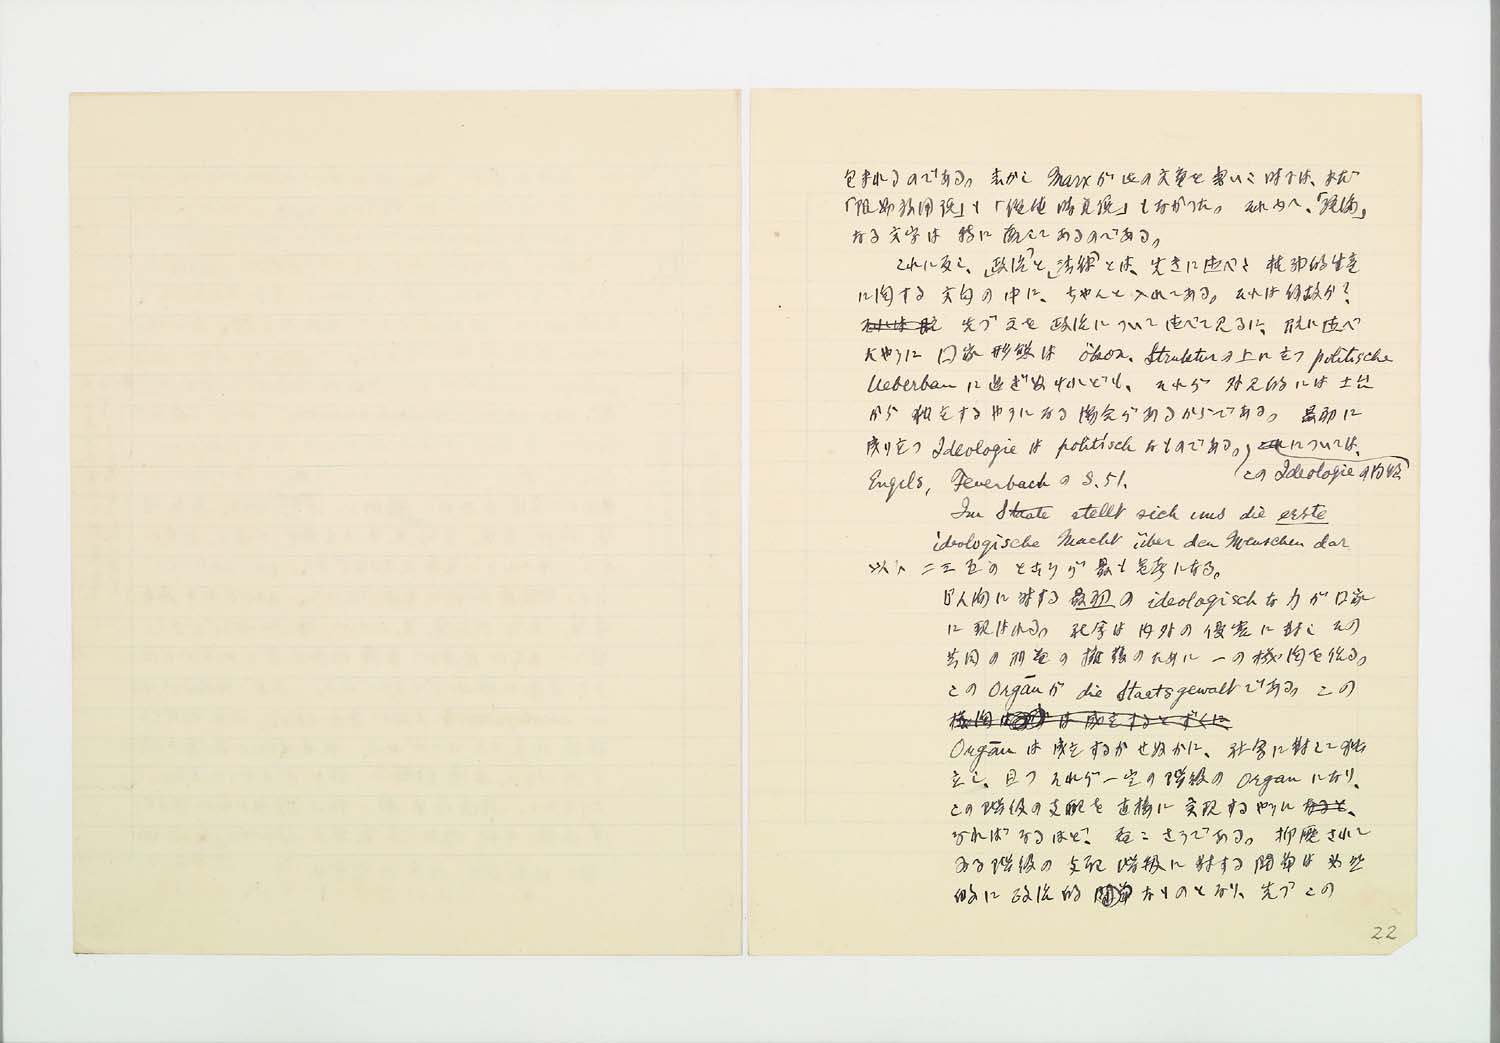 包まれるのである。しかし Marx が此の文章を書いた時は、まだ
「  」も「  」もなかった。それ故へ、「理論」
なる文字は特に        てあるのである。
これに反し、「政治」と「法律」とは、先きに述べた精神的生産
に関する文句の中に、ちゃんと入れてある。それは何故か？
それは 先づ  を政治について述べて見るに、既に述べ
たやうに国家形態は ökon. Struktur の上に立つ politische
Ueberbau に過ぎぬけれども、それが外見的には土台
から独立するやうになる傾向があるからである。最初に
成り立つ Ideologie は politisch なものである。これについては、
この Ideologie の内容
Engels, Feuerbach の S.51.
Im Staate stellt sich uns die erste
ideologische Macht über den Menschen dar
以下二三頁のところが最も参考になる。
「人間に対する最初の ideologisch な力が国家
に現はれる。社会は内外の侵害に対しその
共同の利益の擁護のために一の機関を作る。
この Organ が die Staatsgewalt である。この
機関は は成立するとすぐに
Organ は成立するかせぬかに、社会に対して独
立し、且つそれが一定の階級の Organ になり、
この階級の支配を直接に実現するやうになると、
なればなるほど、  さうである。抑圧されて
ゐる階級の支配階級に対する闘争は必然
的に政治的闘争なものとなり、先づこの
22